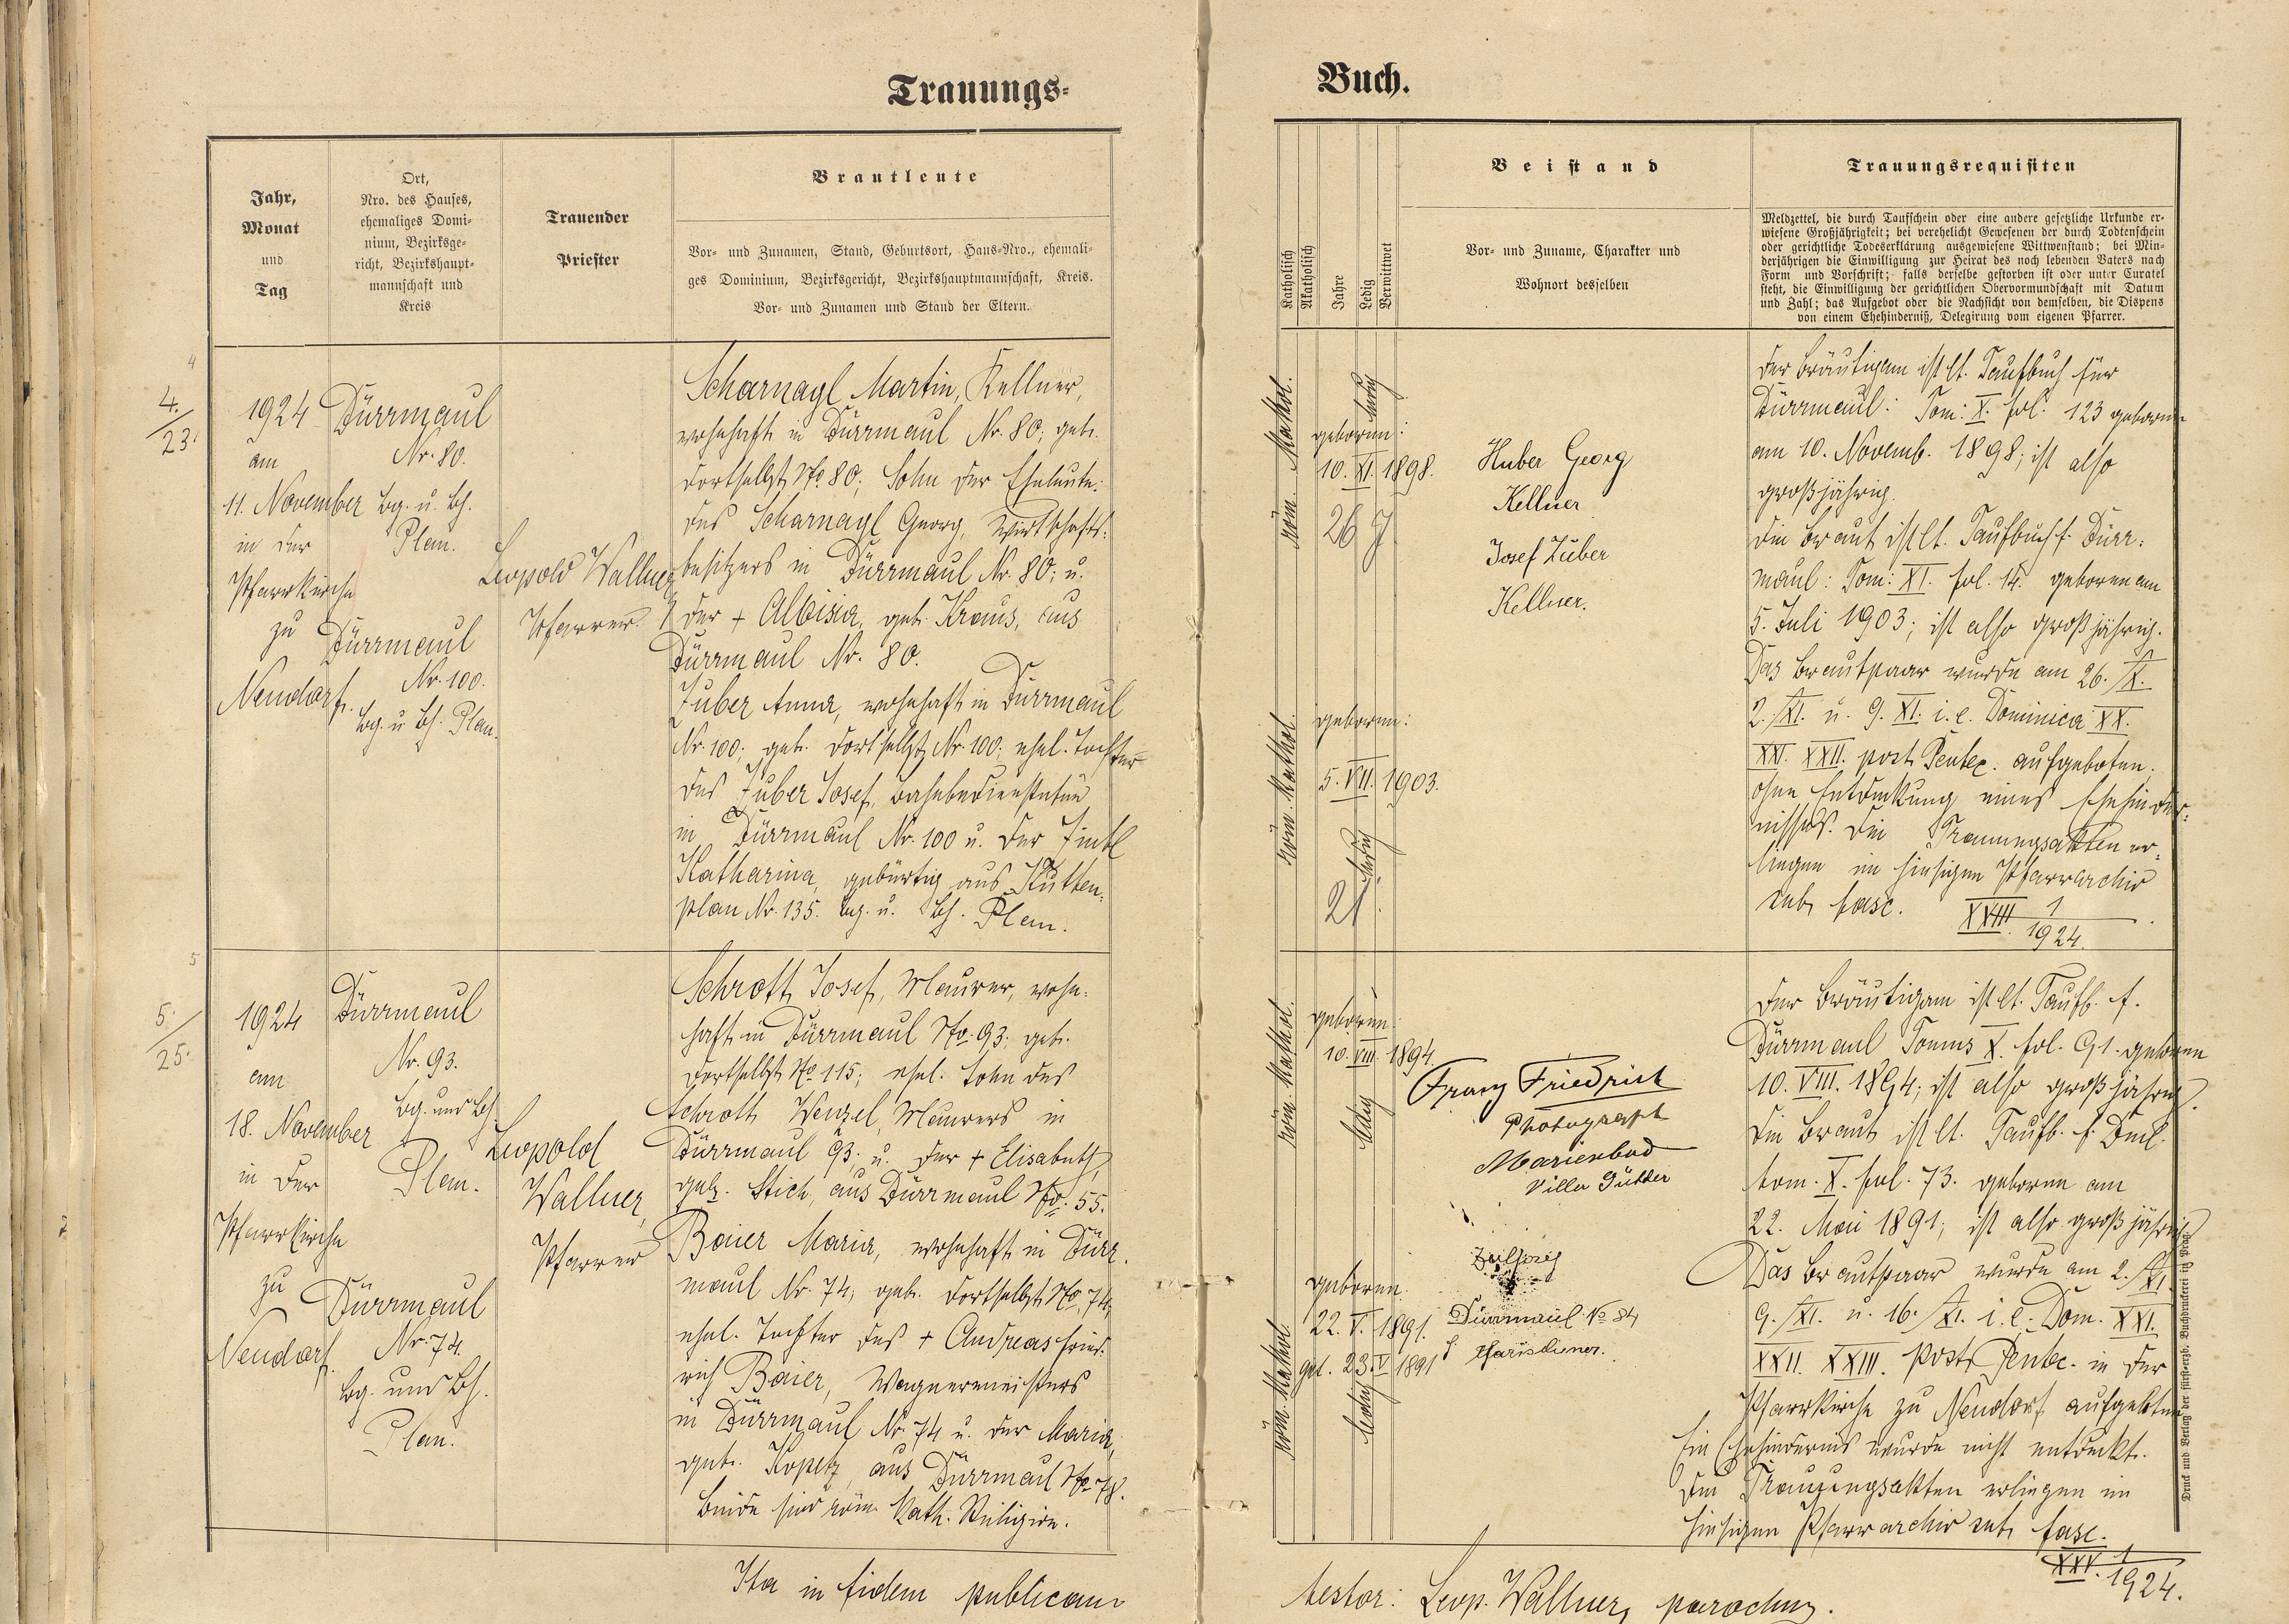 Trauungs=
Buch.
Jahr,
Monat
und
Tag
Ort,
Nro. des Hauses,
ehemaliges Domi-
nium, Bezirksge-
richt, Bezirkshaupt-
mannschaft und
Kreis
Trauender
Priester
Brautleute
Vor- und Zunamen, Stand, Geburtsort, Haus-Nro., ehemali-
ges Dominium, Bezirksgericht, Bezirkshauptmannschaft, Kreis.
Vor- und Zunamen und Stand der Eltern.
Katholisch
Akatholisch
Jahre
Ledig
Verwittwet
Beistand
Vor- und Zuname, Charakter und
Wohnort desselben
Trauungsrequisiten
Meldzettel, die durch Taufschein oder eine andere gesetzliche Urkunde er-
wiesene Großjährigkeit; bei verehelicht Gewesenen der durch Todtenschein
oder gerichtliche Todeserklärung ausgewiesene Wittwenstand; bei Min-
derjährigen die Einwilligung zur Heirat des noch lebenden Vaters nach
Form und Vorschrift; falls derselbe gestorben ist oder unter Curatel
steht, die Einwilligung der gerichtlichen Obervormundschaft mit Datum
und Zahl; das Aufgebot oder die Nachsicht von demselben, die Dispens
von einem Ehehinderniß, Delegirung vom eigenen Pfarrer.
4
4.
23.
1924
am
11. November
in der
Pfarrkirche
zu
Neudorf.
Dürrmaul
Nr. 80.
bg. u. bh.
Plan.
Dürrmaul
Nr. 100.
bg. u bh. Plan.
Leopold Wallner
Pfarrer.
Scharnagl Martin, Kellner,
wohnhaft in Dürrmaul Nr. 80; geb.
dortselbst No 80; Sohn der Eheleute:
des Scharnagl Georg, Wirtschafts-
besitzers in Dürrmaul Nr. 80; u.
der + Aloisia, geb. Kraus, aus
Dürrmaul Nr. 80.
Zuber Anna, wohnhaft in Dürrmaul
Nr. 100; geb. dortselbst Nr. 100; ehel. Tochter
des Zuber Josef, Bahnbediensteten
in Dürrmaul Nr. 100 u. der
Katharina, gebürtig aus Kutten-
plan Nr. 135. bg. u. bh. Plan.
röm. Kathol.
geboren:
10. XI. 1898.
ledig
26 J.
röm. Kathol.
geboren:
5. VII. 1903.
ledig
21.
Huber Georg
Kellner
Josef Zuber
Kellner.
Der Bräutigam ist lt. Taufbuch für
Dürrmaul: Tom: X. fol. 123 geboren
am 10. Novemb. 1898; ist also
großjährig.
Die Braut ist lt. Taufbuch f. Dürr-
maul: Tom: XI. fol. 14. geboren am
5. Juli 1903; ist also großjährig.
Das Brautpaar wurde am 26. /X.
2. /XI. u. 9. XI. i. e. Dominica XX.
XXI. XXII. post Pentec. aufgeboten.
ohne Entdeckung eines Ehehinder-
nisses. Die Trauungsakten er-
liegen im hiesigen Pfarrarchiv
sub fasc. XVIII 1
1924.
5
5.
25.
1924
am
18. November
in der
Pfarrkirche
zu
Neudorf.
Dürrmaul
Nr. 93.
bg. und bh
Plan.
Dürrmaul
Nr. 74.
bg. und bh.
Plan.
Leopold
Wallner,
Pfarrer
Schrott Josef, Maurer, wohn-
haft in Dürrmaul No. 93; geb.
dortselbst No 115; ehel. Sohn des
Schrott Wenzel, Maurers in
Dürrmaul 93; u. der + Elisabeth,
geb. Stich, aus Dürrmaul No. 55.
Baier Maria, wohnhaft in Dürr-
maul Nr. 74; geb. dortselbst No. 74;
ehel. Tochter des + Andreas Fried-
rich Baier, Wagnermeisters
in Dürrmaul Nr. 74 u. der Maria,
geb. Kopetz, aus Dürrmaul No 78.
Beide sind röm. kath. Religion.
röm. Kathol.
geboren:
10. VIII. 1894
ledig
röm. Kathol.
geboren.
22. V. 1891.
get. 23. V 1891
ledig
Franz Friedrich
Photograph
Marienbad
Villa
Dürrmaul No 84
Der Bräutigam ist lt. Taufb. f.
Dürrmaul Tomus X. fol. 91. geboren
10. VIII. 1894; ist also großjährig.
Die Braut ist lt. Taufb. f. Dml.
tom. X. fol. 73. geboren am
22. Mai 1891; ist also großjährig
Das Brautpaar wurde am 2. /XI.
9. /XI. u. 16. /XI. i. e. Dom. XXI.
XXII. XXIII. post Pentec. in der
Pfarrkirche zu Neudorf aufgeboten
Ein Ehehindernis wurde nicht entdeckt.
Die Trauungsakten erliegen im
hiesigen Pfarrarchiv sub fasc.
XXV. 1
1924.
Druck und Verlag der fürsterzb. Buchdruckerei in Prag.
Ita in fidem publicam
testor: Leop. Wallner, parochus.